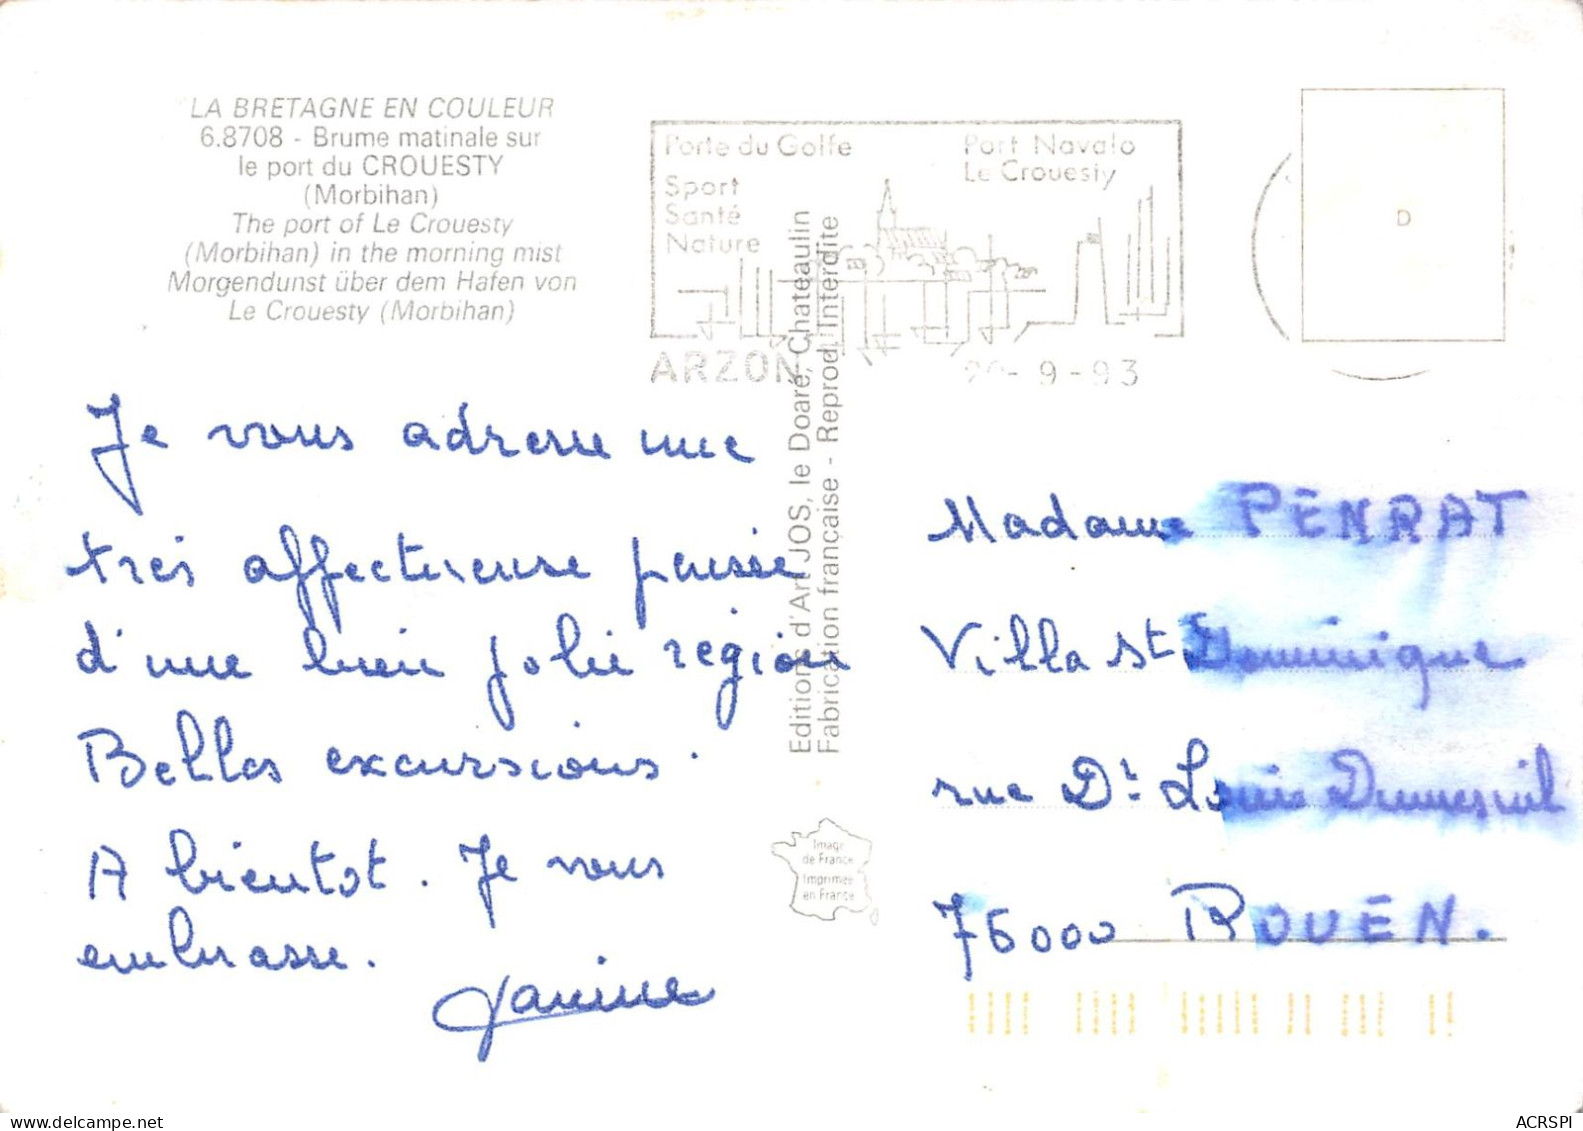 LA BRETAGNE EN COULEUR
6.8708 - Brume matinale sur
le port du CROUESTY
(Morbihan)
The port of Le Crouesty
(Morbihan) in the morning mist
Morgendunst über dem Hafen von
Le Crouesty (Morbihan)
Porte du Golfe
Sport
Santé
Nature
Port Navalo
Le Crouesty
ARZON
- 9 - 93
D
Je vous adresse une
très affectueuse pensée
d'une bien jolie région
Belles excursions.
A bientot. Je vous
embrasse.
Janine
Editions d'Art JOS, le Doaré, Chateaulin
Fabrication française - Reprod. Interdite
Image
de France
Imprimée
en France
Madame PENRAT
Villa St Dominique
rue Dr Louis Dumesnil
76000 ROUEN.
ACRSPI